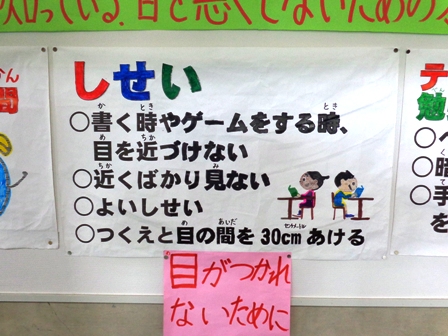 知っている？目を悪くしないための
しせい
○書く時やゲームをする時、
目を近づけない
○近くばかり見ない
○よいしせい
○つくえと目の間を30cmあける
目がつかれ
ないために